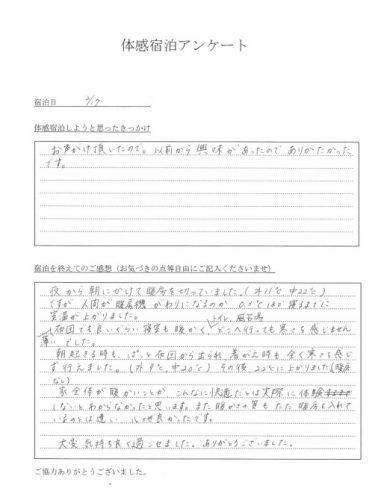 体感宿泊アンケート
宿泊日 2/7
体感宿泊しようと思ったきっかけ
お声かけ頂いたので。以前から興味があったのでありがたかった
です。
宿泊を終えてのご感想(お気づきの点等自由にご記入くださいませ)
夜から朝にかけて暖房を切っていました。(外11℃、中22℃)
ですが人間が暖房機がわりになるのか 0.5℃ほど寝るまでに
室温が上がりました。
トイレ、風呂場
布団でも良いぐらい寝室も暖かく、どこへ行っても寒さを感じません
薄い でした。
朝起きる時も、ぱっと布団から出られ着がえ時も全く寒さを感じ
ず行えました。(外9℃、中20℃) その後22℃に上がりました(暖房
なし)
家全体が暖かいことがこんなに快適だとは実際に体験
しないとわからなかったと思います。また暖かさの質もただ暖房を入れて
いるのとは違い、心地良かったです。
大変気持ち良く過ごせました。ありがとうございました。
ご協力ありがとうございました。